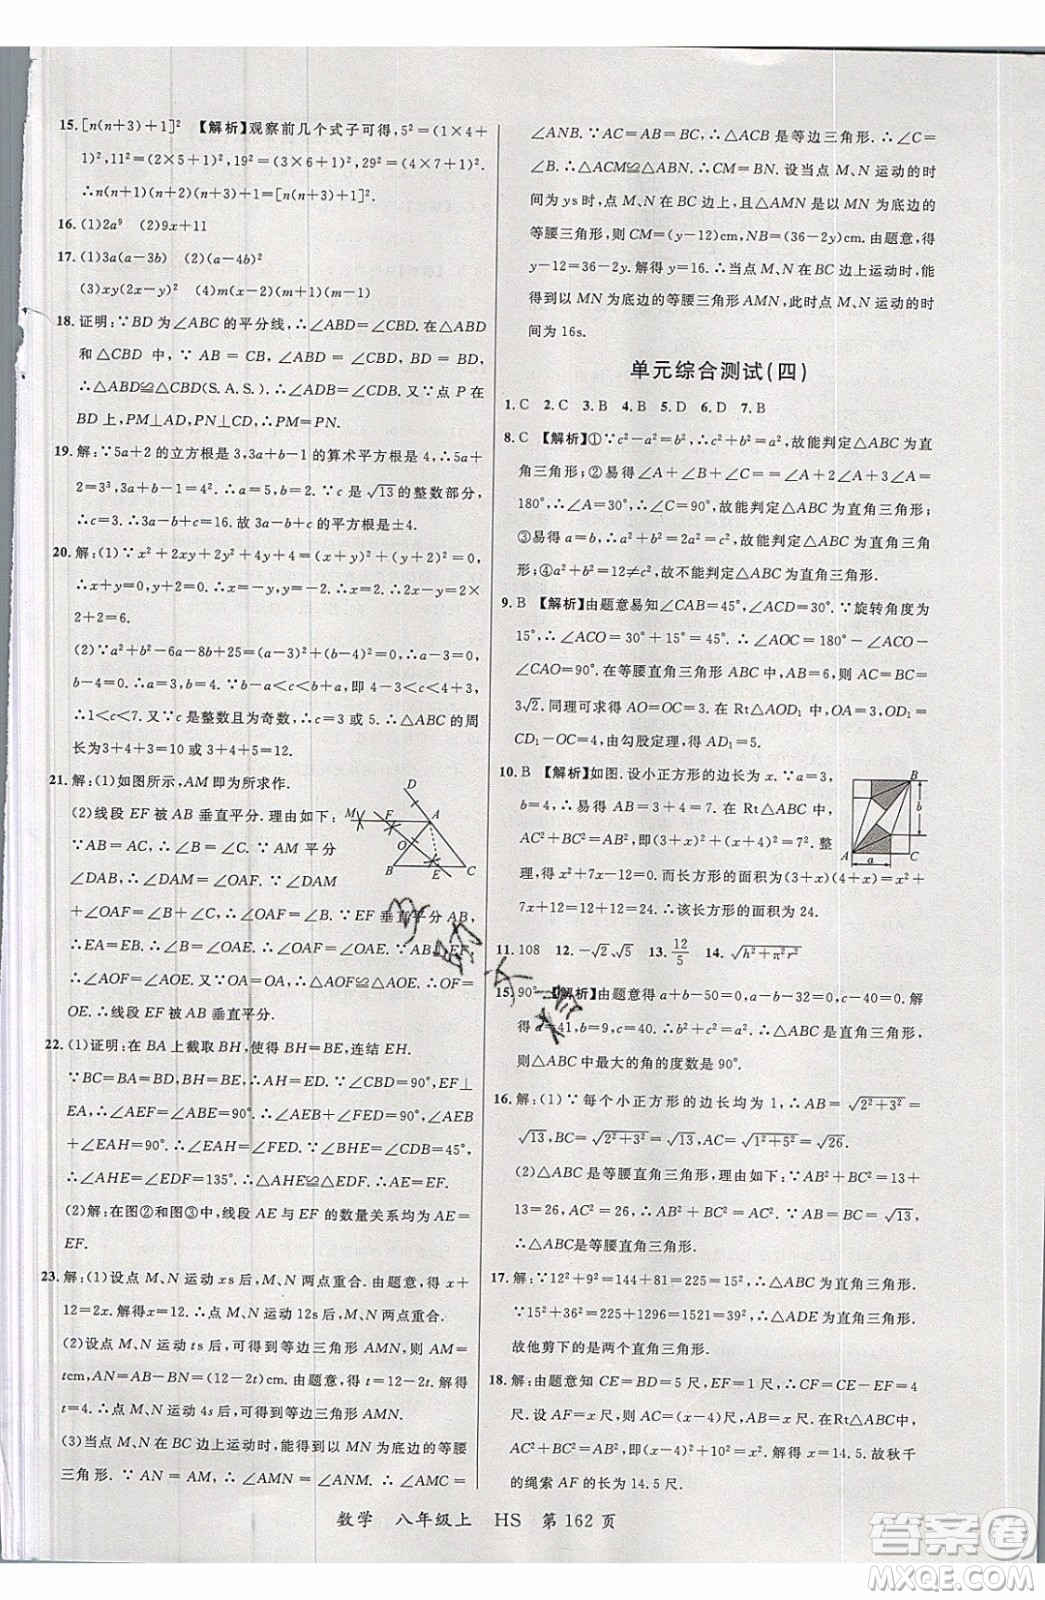 15. [n(n+3)+1]² 【解析】观察前几个式子可得,5²=(1×4+
1)²,11²=(2×5+1)²,19²=(3×6+1)²,29²=(4×7+1)².
∴n(n+1)(n+2)(n+3)+1=[n(n+3)+1]².
16. (1)2a⁹ (2)9x+11
17. (1)3a(a-3b) (2)(a-4b)²
(3)xy(2x-y)² (4)m(x-2)(m+1)(m-1)
18. 证明:∵BD为∠ABC的平分线,∴∠ABD=∠CBD. 在△ABD
和△CBD中,∵AB=CB,∠ABD=∠CBD,BD=BD,
∴△ABD≌△CBD(S.A.S.). ∴∠ADB=∠CDB. 又∵点P在
BD上,PM⊥AD,PN⊥CD,∴PM=PN.
19. 解:∵5a+2的立方根是3,3a+b-1的算术平方根是4,∴5a+
2=3³,3a+b-1=4². ∴a=5,b=2. ∵c是√13的整数部分,
∴c=3. ∴3a-b+c=16. 故3a-b+c的平方根是±4.
20. 解:(1)∵x²+2xy+2y²+4y+4=(x+y)²+(y+2)²=0,
∴x+y=0,y+2=0. ∴x=2,y=-2. ∴2x-y=2×2+
2=6.
(2)∵a²+b²-6a-8b+25=0,∴(a-3)²+(b-4)²=0.
∴a-3=0,b-4=0. ∴a=3,b=4. ∵b-a<c<b+a,即4-3<c<4+3,
∴1<c<7. 又∵c是整数且为奇数,∴c=3或5. ∴△ABC的周
长为3+4+3=10或3+4+5=12.
21. 解:(1)如图所示,AM即为所求作.
(2)线段EF被AB垂直平分. 理由如下:
∵AB=AC,∴∠B=∠C. ∵AM平分
∠DAB,∴∠DAF=∠FAB. ∵∠DAM
+∠OAF=2∠B,∴∠OAF=∠B. ∵EF垂直平分AB,
∴EA=EB. ∴∠B=∠OAE. ∴∠OAF=∠OAE. ∵AB⊥EF,
∴∠AOF=∠AOE. ∴△AOF≌△AOE. ∴OF=
OE. ∴AB垂直平分EF.
22. (1)证明:在BA上截取BH,使得BH=BE,连结EH.
∵BC=BA=BD,BH=BE,∴AH=ED. ∵∠CBD=90°,EF⊥
AE,∴∠AEF=∠ABE=90°. ∴∠AEB+∠FED=90°,∠AEB
+∠EAH=90°. ∴∠EAH=∠FED. ∵∠BHE=∠CDB=45°,
∴∠AHE=∠FDE=135°. ∴△AHE≌△EDF. ∴AE=EF.
(2)解:在图②和图③中,线段AE与EF的数量关系均为AE=
EF.
23. 解:(1)设点M、N运动xs后,M、N两点重合. 由题意,得x+
12=2x. 解得x=12. ∴点M、N运动12s后,M、N两点重合.
(2)设点M、N运动ts后,可得到等边三角形AMN,则AM=
tcm,AN=AB-BN=(12-2t)cm. 由题意,得t=12-2t. 解得
t=4. ∴点M、N运动4s后,可得到等边三角形AMN.
(3)当点M、N在BC边上运动时,能得到以MN为底边的等腰
三角形. ∵AN=AM,∴∠AMN=∠ANM. ∴∠AMC=
∠ANB. ∵AC=AB=BC,∴△ACB是等边三角形. ∴∠C=
∠B. ∴△ACM≌△ABN. ∴CM=BN. 设当点M、N运动的时
间为ys时,M、N在BC边上,且△AMN是以MN为底边的等
腰三角形. ∴CM=(y-12)cm,NB=(36-2y)cm. 由题意,得
y-12=36-2y. 解得y=16. ∴当点M、N在BC边上运动时,能
得到以MN为底边的等腰三角形AMN,此时点M、N运动的时
间为16s.
单元综合测试(四)
1. C 2. C 3. B 4. B 5. D 6. D 7. B
8. C 【解析】①∵c²-a²=b²,∴c²+b²=a²,故能判定△ABC为直
角三角形;②易得∠A+∠B+∠C=∠A+2∠A+3∠A=
180°,∴∠A=30°,∠C=90°,故能判定△ABC为直角三角形;
③易得a=b,a²+b²=2a²=c²,故能判定△ABC为直角三角
形;④a²+b²=12≠c²,故不能判定△ABC为直角三角形.
9. B 【解析】由题意易知∠CAB=45°,∠ACD=30°. ∵旋转角度为
15°,∴∠ACO=30°+15°=45°. ∴∠AOC=180°-∠ACO-
∠CAO=90°. 在等腰直角三角形ABC中,AB=6,则AC=BC=
3√2. 同理可求得AO=OC=3. 在Rt△AOD₁中,OA=3,OD₁=
CD₁-OC=4,由勾股定理,得AD₁=5.
10. B 【解析】如图. 设小正方形的边长为x. ∵a=3,
b=4,∴易得AB=3+4=7. 在Rt△ABC中,
AC²+BC²=AB²,即(3+x)²+(x+4)²=7². 整
理,得x²+7x-12=0. 而长方形的面积为(3+x)(4+x)=x²+
7x+12=12+12=24. ∴该长方形的面积为24.
11. 108 12. -√2 √5 13. 12/5 14. √(h²+π²r²)
15. 90° 【解析】由题意得a+b-50=0,a-b-32=0,c-40=0,解
得a=41,b=9,c=40. ∴b²+c²=a². ∴△ABC为直角三角形,
则△ABC中最大的角的度数是90°.
16. 解:(1)∵每个小正方形的边长均为1,∴AB=√(2²+3²)=
√13,BC=√(2²+3²)=√13,AC=√(1²+5²)=√26.
(2)△ABC是等腰直角三角形,理由如下:∵AB²+BC²=13+
13=26,AC²=26,∴AB²+BC²=AC². ∵AB=BC=√13,
∴△ABC是等腰直角三角形.
17. 解:∵12²+9²=144+81=225=15²,∴△ABC为直角三角形.
∵15²+36²=225+1296=1521=39²,∴△ADE为直角三角形.
故他剪下的是两个直角三角形.
18. 解:由题意知CE=BD=5尺,AE=1尺,∴AC=CE-AE=4
尺. 设OA=OB=x尺,则OC=(x-4)尺. 在Rt△OBC中,
AC²+BC²=OB²,即(x-4)²+10²=x². 解得x=14.5. 故秋千
的绳索AF的长为14.5尺.
数学 八年级上 HS 第162页
答案圈
MXQE.COM